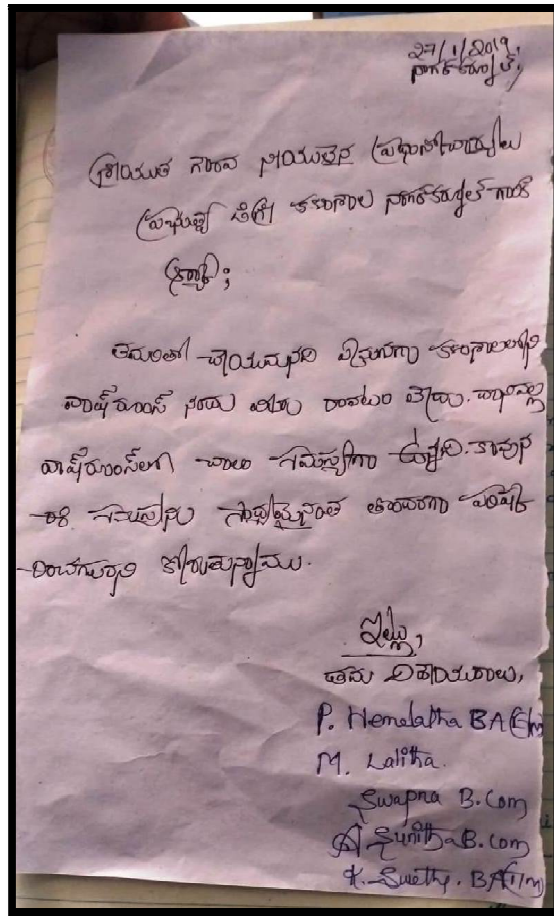 27/1/2019,
నాగర్ కర్నూల్,
శ్రీయుత గౌరవ నీయులైన ప్రధానోచార్యులు
ప్రభుత్వ డిగ్రీ కళాశాల నాగర్ కర్నూల్ గారికి
ఆర్యా;
తమరితో చేయుమనవి ఏమనగా కళాశాలలోని
వాష్ రూంస్ నందు నీరు రావటం లేదు. దానివల్ల
వాష్ రూంస్ లో చాలా సమస్యగా ఉన్నది. కావున
ఈ సమస్యను సాధ్యమైనంత తొందరగా పరిష్క
రించగలరని కోరుతున్నాము.
ఇట్లు,
తమ విధేయురాలు,
P. Hemalatha BA (E/m)
M. Lalitha.
Swapna B.Com
Sunitha B.com
K. Swethy. BA (T/m)